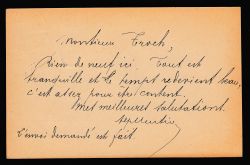 Monsieur Troch,
Rien de neuf ici. Tout est
tranquille et le temps redevient beau,
c'est assez pour être content.
Mes meilleures salutations
L'envoi demandé est fait.